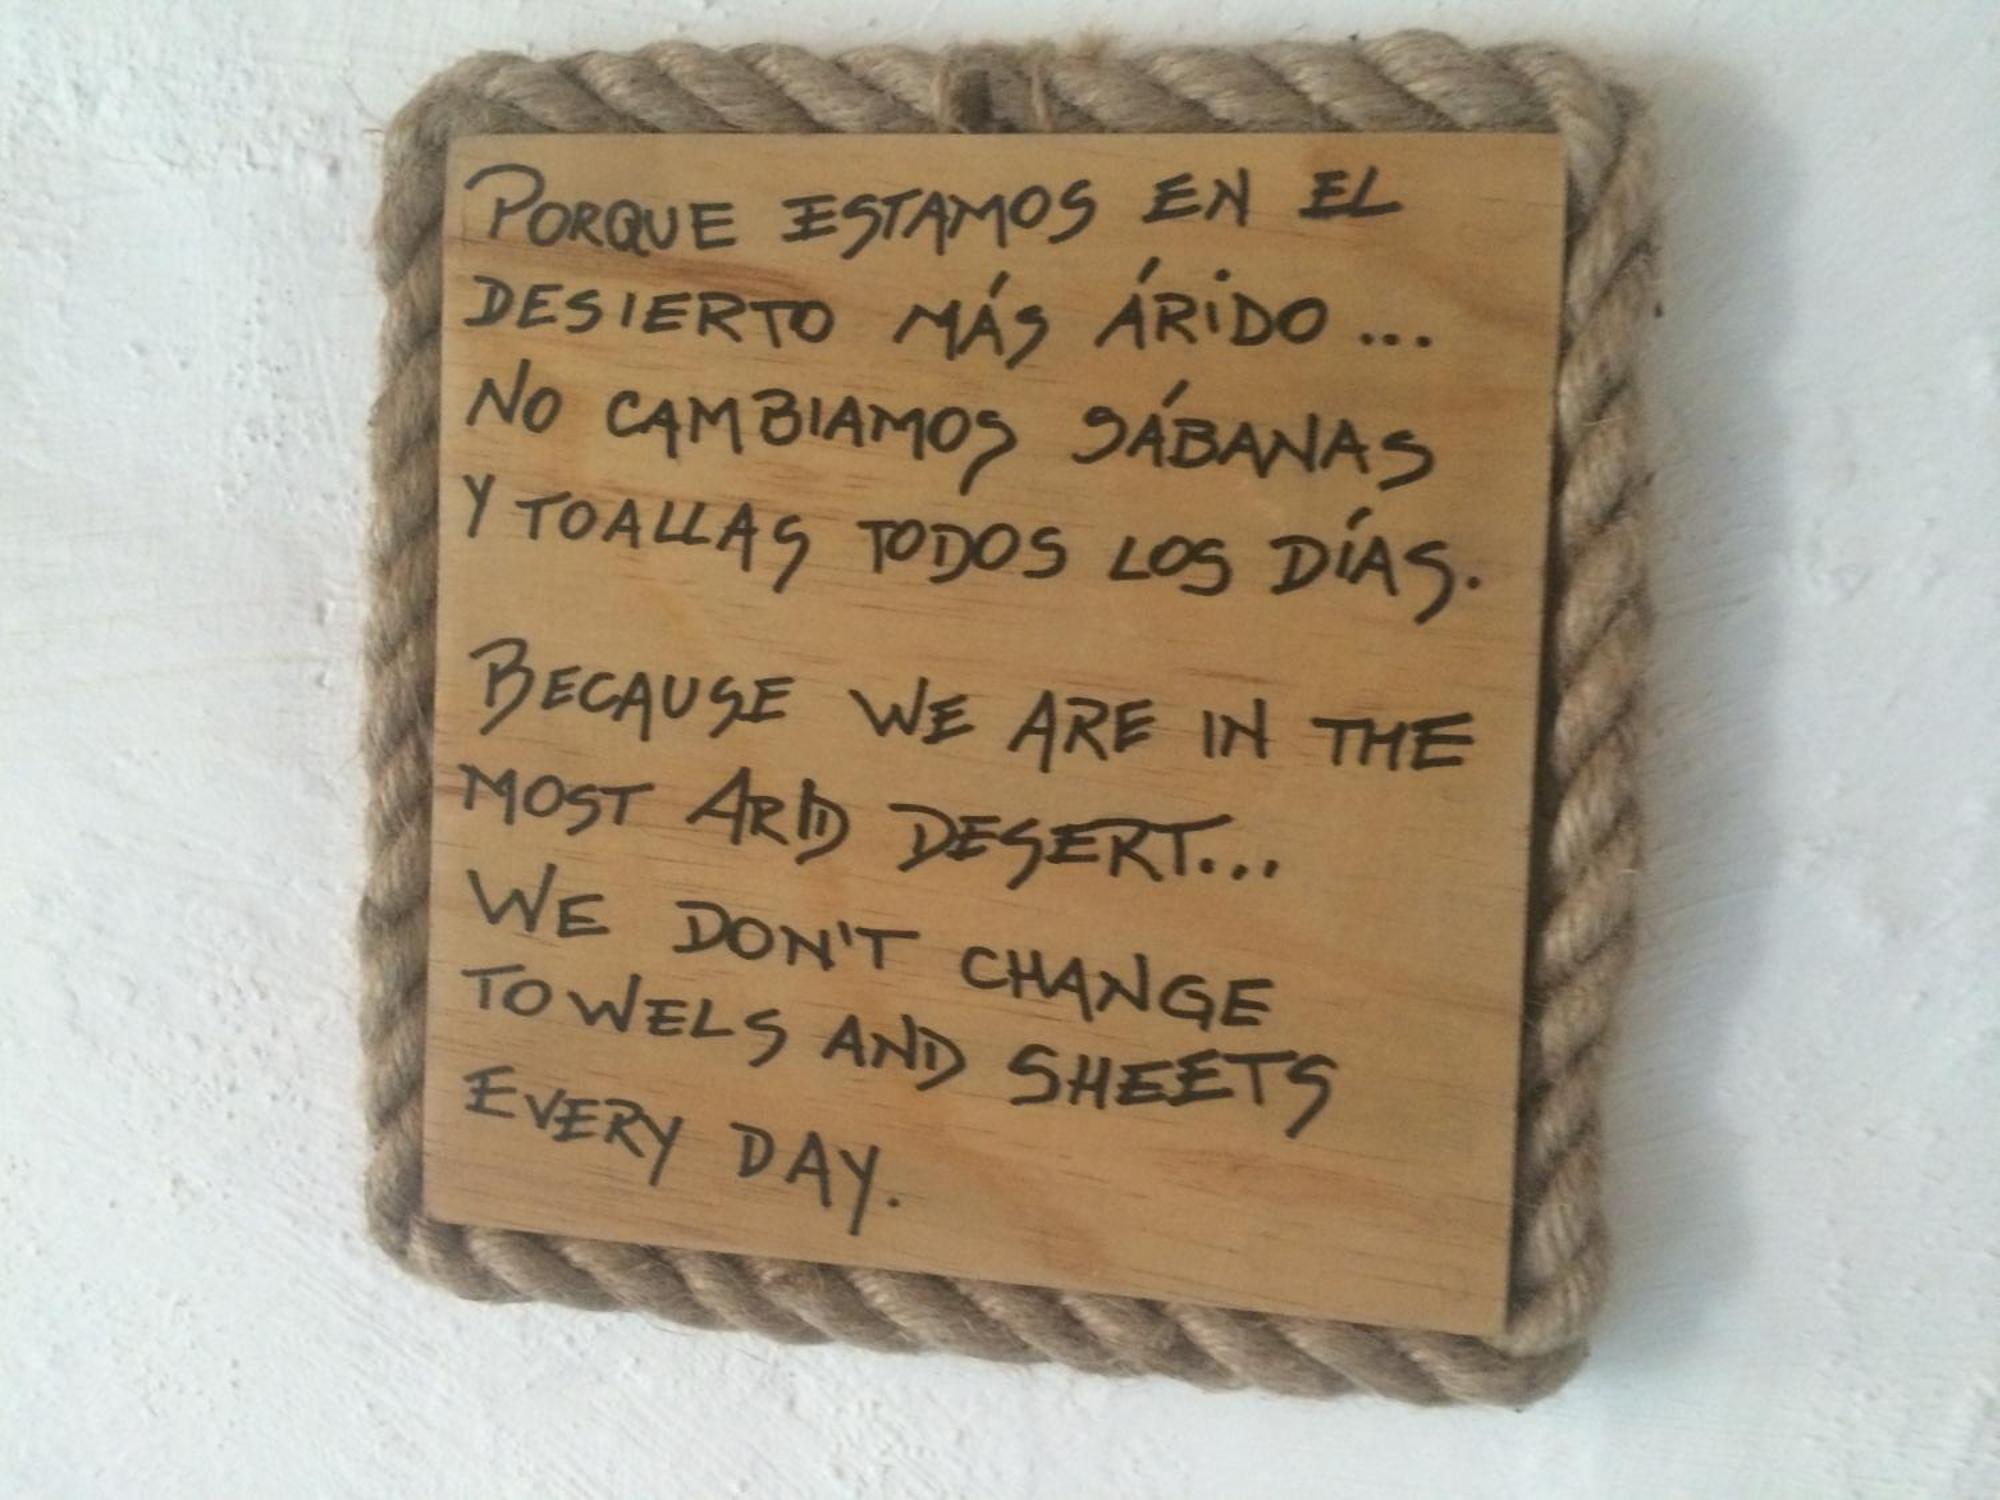 PORQUE ESTAMOS EN EL
DESIERTO MÁS ÁRIDO...
NO CAMBIAMOS SÁBANAS
Y TOALLAS TODOS LOS DÍAS.
BECAUSE WE ARE IN THE
MOST ARID DESERT...
WE DON'T CHANGE
TOWELS AND SHEETS
EVERY DAY.